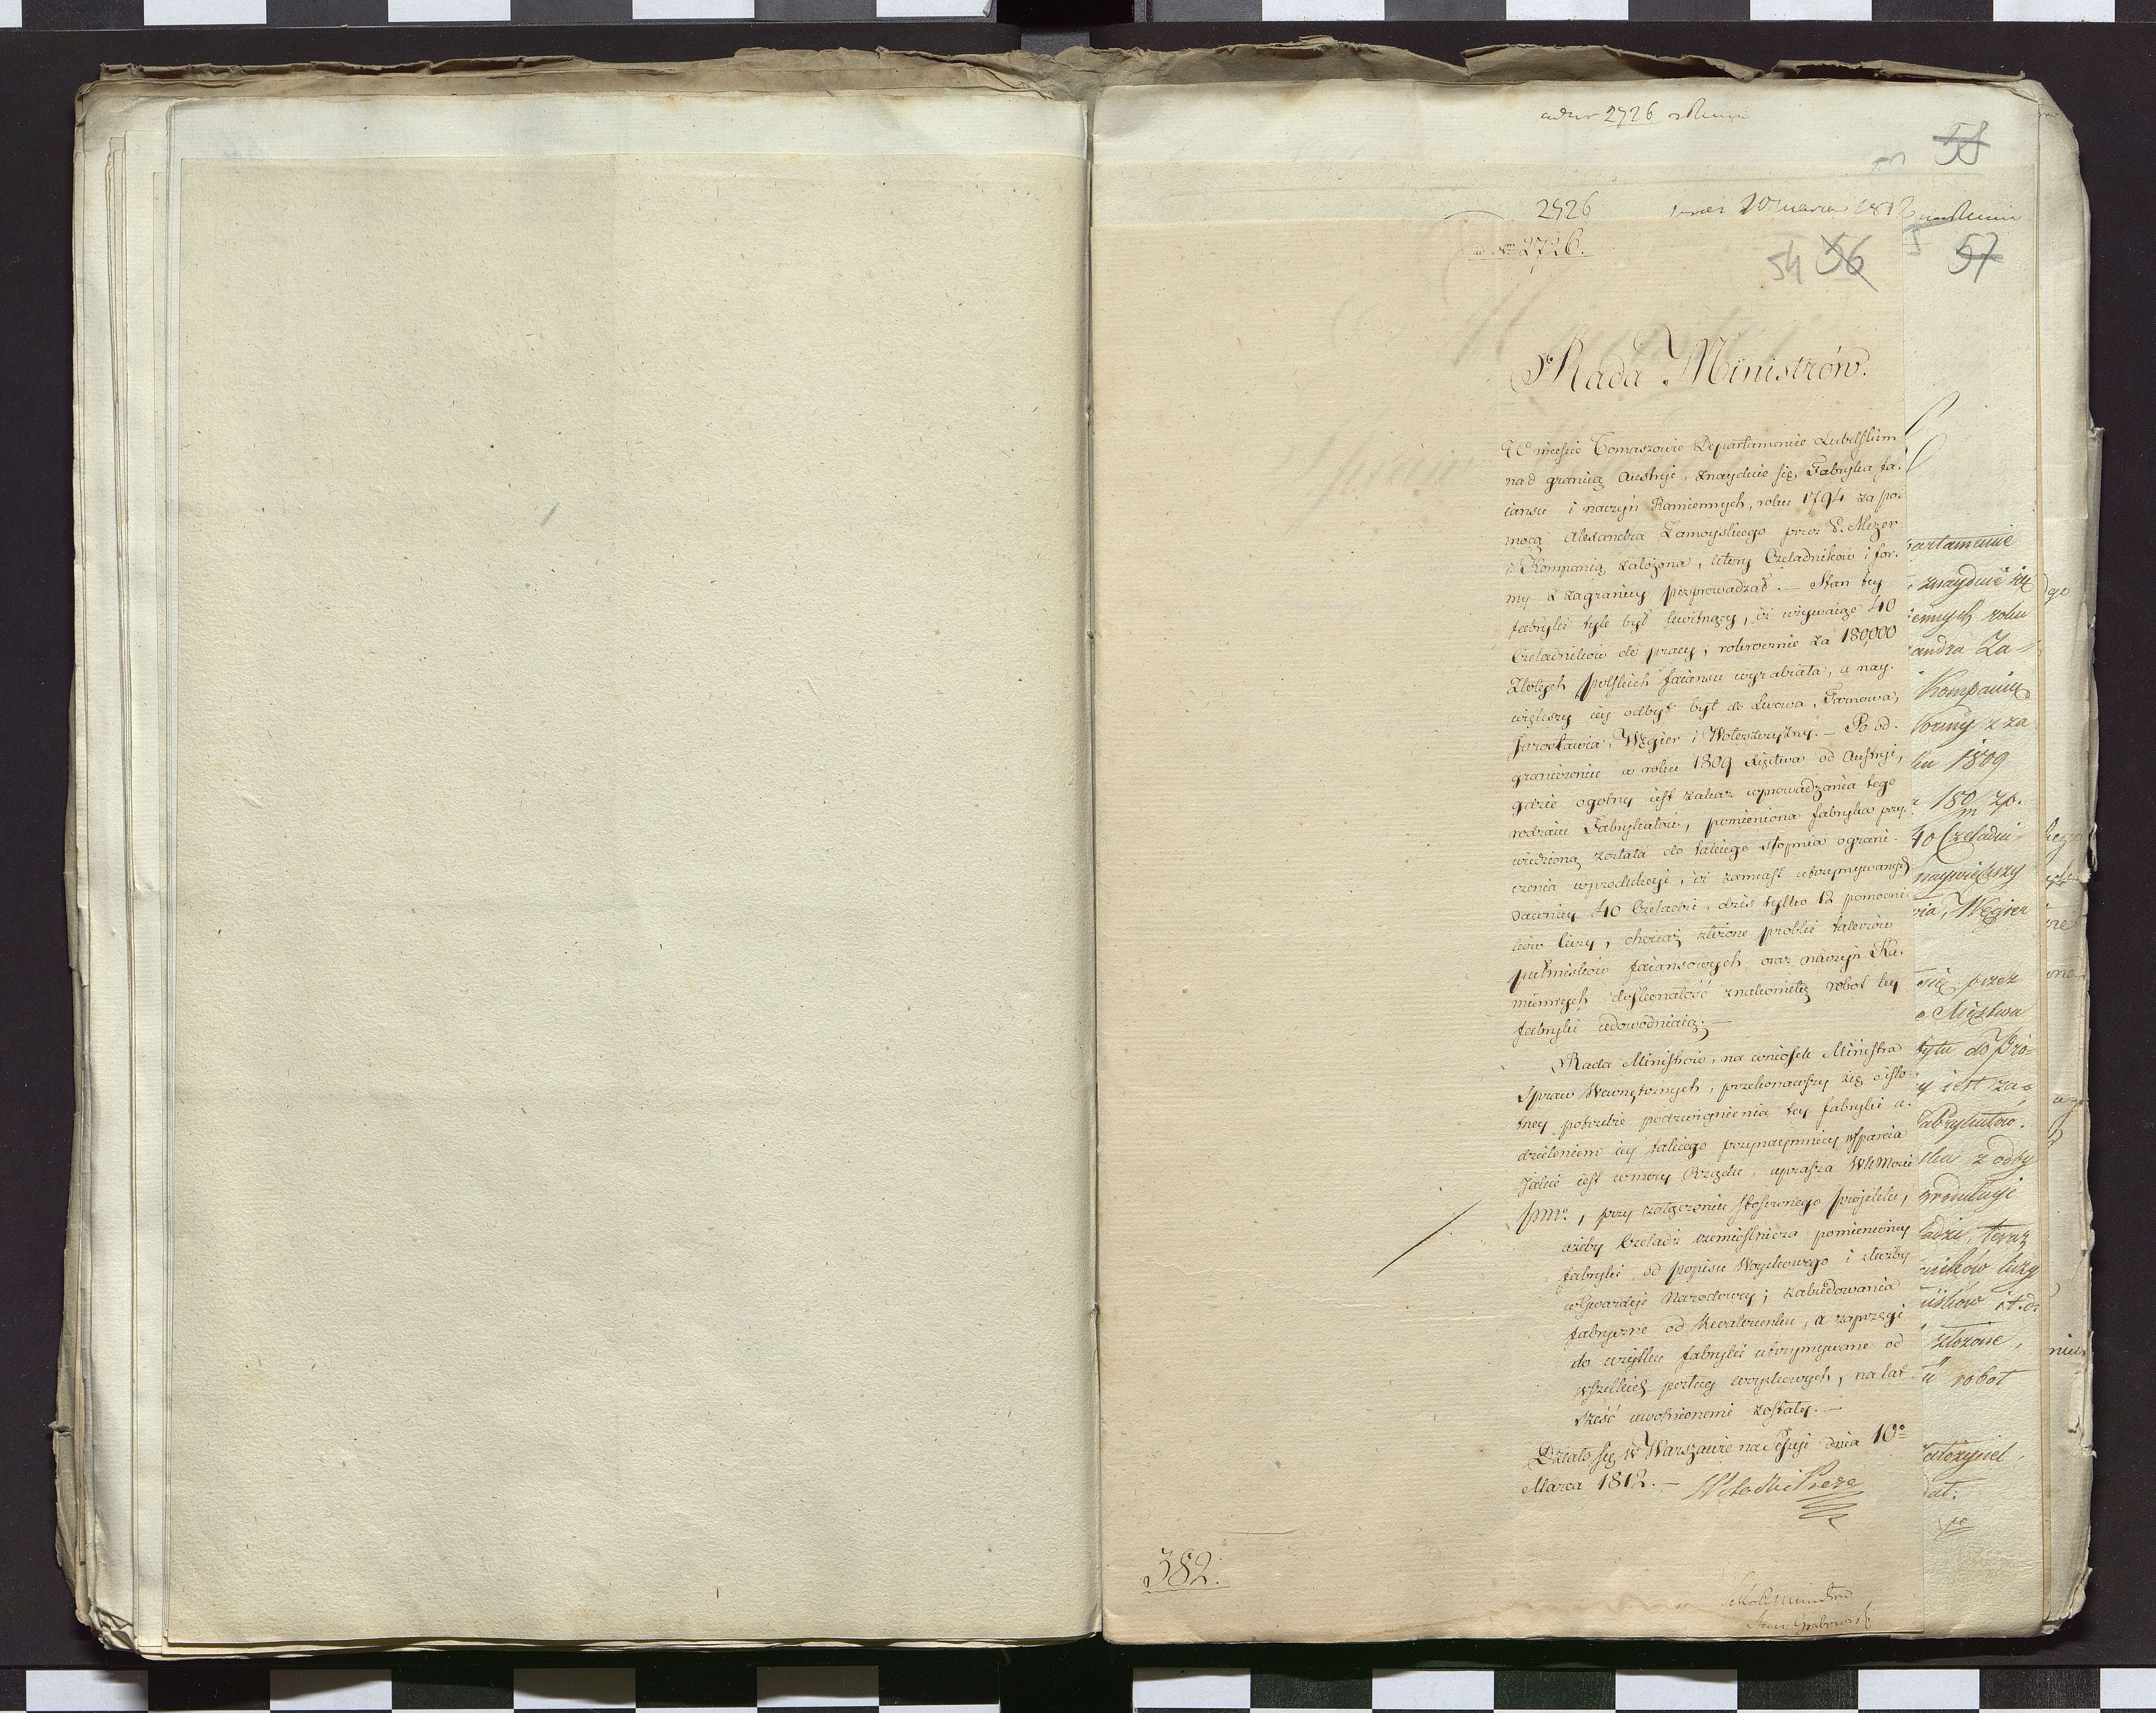 2726
58
2726 20 marca 1812
ad Nro 2726.
54 56 57
Rada Ministrów.
W mieście Tomaszowie Departamencie Lubelskim
nad granicą Austryi, znayduie się Fabryka fa-
iansu i naczyń Kamiennych, roku 1794 za po-
mocą Alexandra Zamoyskiego przez P. Mezer
i Kompanią założona, który Czeladników i for-
my z zagranicy poprowadzał. — Stan tey
fabryki tyle był kwitnący, iż używaiąc 40
Czeladników do pracy, rokrocznie za 180,000
Złotych polskich faiansu wyrabiała, a nay-
większy iey odbyt był do Lwowa, Tarnowa,
Jarosławia, Węgier i Wołoszczyzny. — Po od-
graniczeniu w roku 1809 Xięstwa od Austryi,
gdzie ogólny iest zakaz wprowadzania tego
rodzaiu Fabrykatów, pomieniona fabryka przy-
wiedzioną została do takiego stopnia ograni-
czenia w produkcyi, iż zamiast utrzymywanych
dawniey 40 Czeladzi, dziś tylko 12 pomocni-
ków liczy, chociaż złożone próbki talerzów
półmisków faiansowych oraz naczyń Ka-
miennych doskonałość znakomitą robot tey
fabryki udowodniaią. —
Rada Ministrów, na wniosek Ministra
Spraw Wewnętrznych, przekonawszy się o isto-
tney potrzebie podzwignienia tey fabryki u-
dzieleniem iey takiego przynaymniey wsparcia
Jakie iest w mocy Rządu, uprasza WKMości
pmo, przy załączeniu stosownego projektu,
ażeby Czeladź rzemieślnicza pomienioney
fabryki od popisu Woyskowego i służby
w Gwardyi Narodowey; zabudowania
fabryczne od kwaterunku, a zaprzęgi
do użytku fabryki utrzymywane od
wszelkich posług woyskowych, na lat
sześć uwolnionemi zostały. —
Działo się w Warszawie na Sessyi dnia 10o
Marca 1812. —
382.
artamencie
znayduie się
ennych roku
andra Za-
Kompanią
formy z za
ku 1809
180/m zp.
40 Czeladni-
naywiększy
wia, Węgier
się przez
e Xięstwa
bytu do Pro-
y iest za-
Fabrykatów.
ska z odby
produkcyi
ladzi, teraz
ników liczy
misków i t.d.
złożone,
robot
ałożyciel